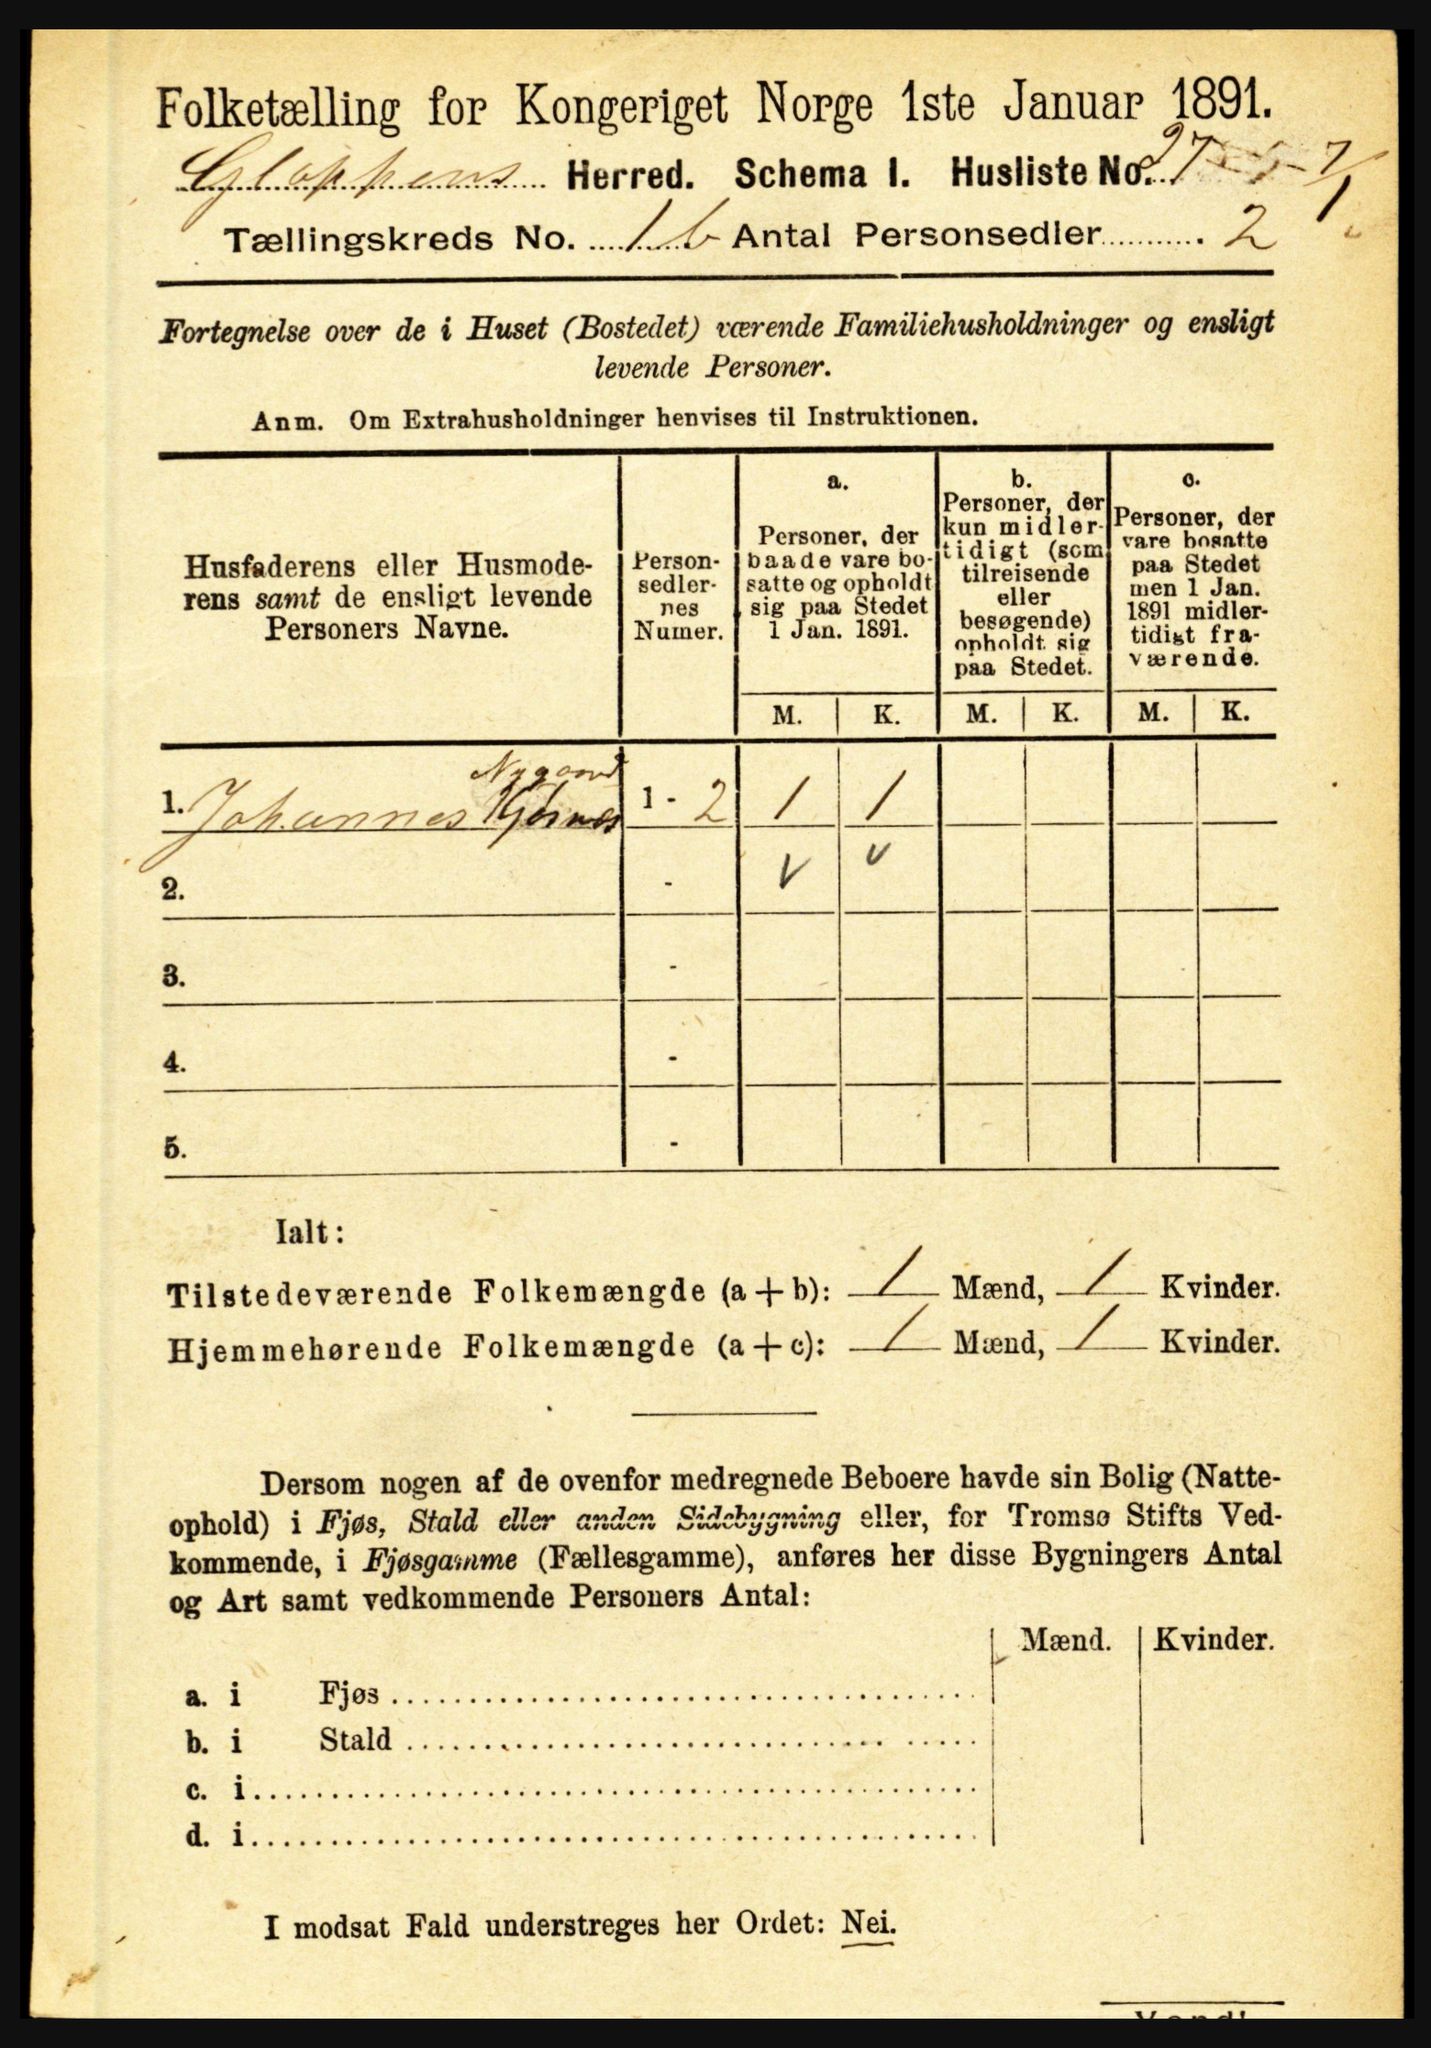 Folketælling for Kongeriget Norge 1ste Januar 1891.
Gloppens Herred. Schema I. Husliste No. 27
Tællingskreds No. 1b Antal Personsedler 2
Fortegnelse over de i Huset (Bostedet) værende Familiehusholdninger og ensligt
levende Personer.
Anm. Om Extrahusholdninger henvises til Instruktionen.
Husfaderens eller Husmode-
rens samt de ensligt levende
Personers Navne.
Person-
sedler-
nes
Numer.
a.
Personer, der
baade vare bo-
satte og opholdt
sig paa Stedet
1 Jan. 1891.
b.
Personer, der
kun midler-
tidigt (som
tilreisende
eller
besøgende)
opholdt sig
paa Stedet.
c.
Personer, der
vare bosatte
paa Stedet
men 1 Jan.
1891 midler-
tidigt fra-
værende.
M. K. M. K. M. K.
Nygaard
1. Johannes 1 - 2 1 1
2. -
3. -
4. -
5. -
Ialt:
Tilstedeværende Folkemængde (a + b): 1 Mænd, 1 Kvinder.
Hjemmehørende Folkemængde (a + c): 1 Mænd, 1 Kvinder.
Dersom nogen af de ovenfor medregnede Beboere havde sin Bolig (Natte-
ophold) i Fjøs, Stald eller anden Sidebygning eller, for Tromsø Stifts Ved-
kommende, i Fjøsgamme (Fællesgamme), anføres her disse Bygningers Antal
og Art samt vedkommende Personers Antal:
Mænd. Kvinder.
a. i Fjøs
b. i Stald
c. i
d. i
I modsat Fald understreges her Ordet: Nei.